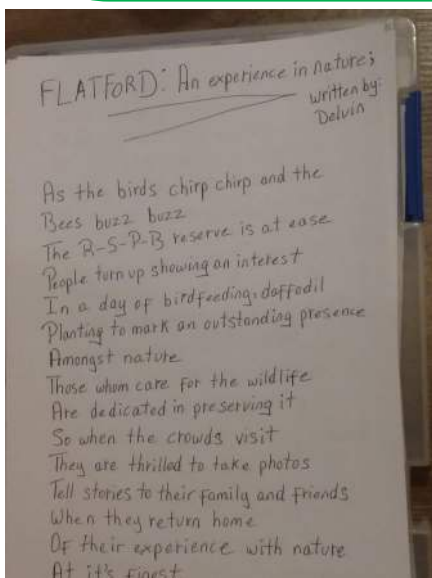 FLATFORD: An experience in nature;
written by:
Delvin
As the birds chirp chirp and the
Bees buzz buzz
The R-S-P-B reserve is at ease
People turn up showing an interest
In a day of birdfeeding, daffodil
Planting to mark an outstanding presence
Amongst nature
Those whom care for the wildlife
Are dedicated in preserving it
So when the crowds visit
They are thrilled to take photos
Tell stories to their family and friends
When they return home
Of their experience with nature
At it's finest